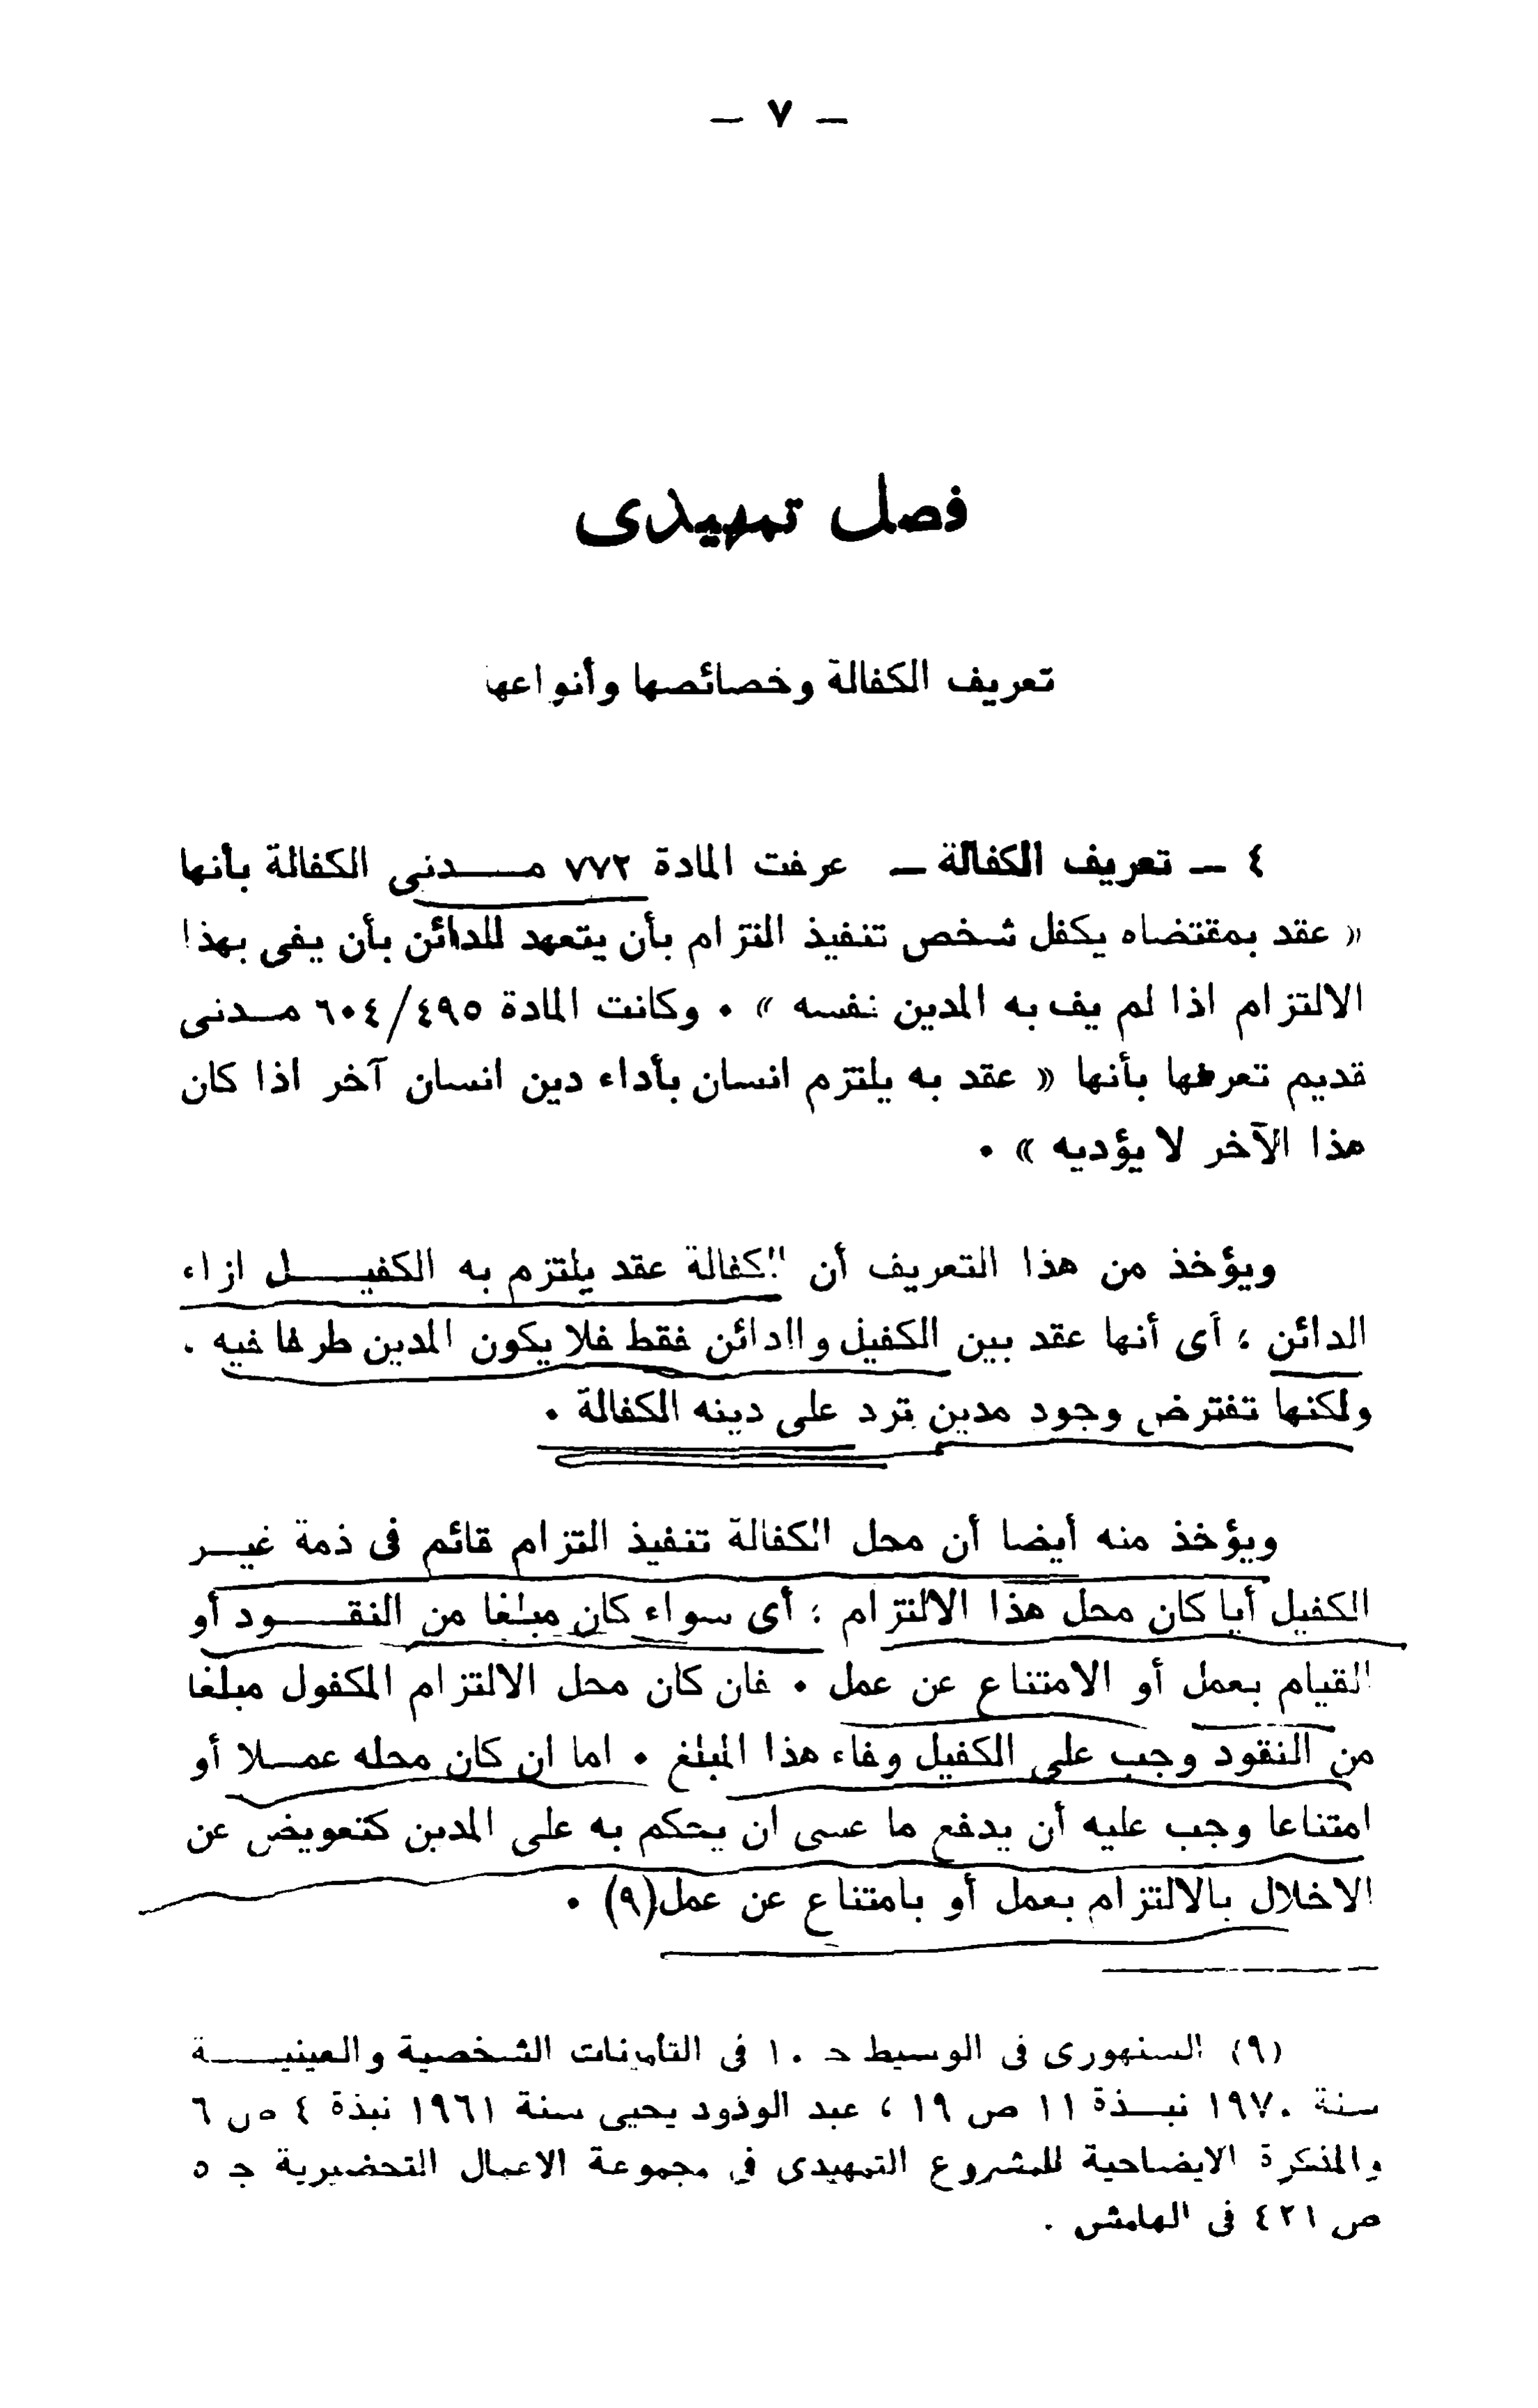 — ٧ —
فصل تمهيدى
تعريف الكفالة وخصائصها وأنواعها
٤ — تعريف الكفالة — عرفت المادة ٧٧٢ مـــدنى الكفالة بأنها
« عقد بمقتضاه يكفل شخص تنفيذ التزام بأن يتعهد للدائن بأن يفى بهذا
الالتزام اذا لم يف به المدين نفسه » ٠ وكانت المادة ٦٠٤/٤٩٥ مـدنى
قديم تعرفها بأنها « عقد به يلتزم انسان بأداء دين انسان آخر اذا كان
هذا الآخر لا يؤديه » ٠
ويؤخذ من هذا التعريف أن الكفالة عقد يلتزم به الكفيـــل ازاء
الدائن ؛ أى أنها عقد بين الكفيل والدائن فقط فلا يكون المدين طرفا فيه .
ولكنها تفترض وجود مدين ترد على دينه الكفالة ٠
ويؤخذ منه أيضا أن محل الكفالة تنفيذ التزام قائم فى ذمة غيـر
الكفيل أيا كان محل هذا الالتزام ؛ أى سواء كان مبلغا من النقـــود أو
القيام بعمل أو الامتناع عن عمل ٠ فان كان محل الالتزام المكفول مبلغا
من النقود وجب على الكفيل وفاء هذا المبلغ ٠ اما ان كان محله عمـلا أو
امتناعا وجب عليه أن يدفع ما عسى ان يحكم به على المدين كتعويض عن
الاخلال بالالتزام بعمل أو بامتناع عن عمل(٩) ٠
(٩) السنهورى فى الوسيط ح ١٠ فى التأمينات الشخصية والعينيـــة
سنة ١٩٧٠ نبـــذة ١١ ص ١٩ ، عبد الودود يحيى سنة ١٩٦١ نبذة ٤ ص ٦
والمذكرة الايضاحية للمشروع التمهيدى فى مجموعة الاعمال التحضيرية ج ٥
ص ٤٢١ فى الهامش .